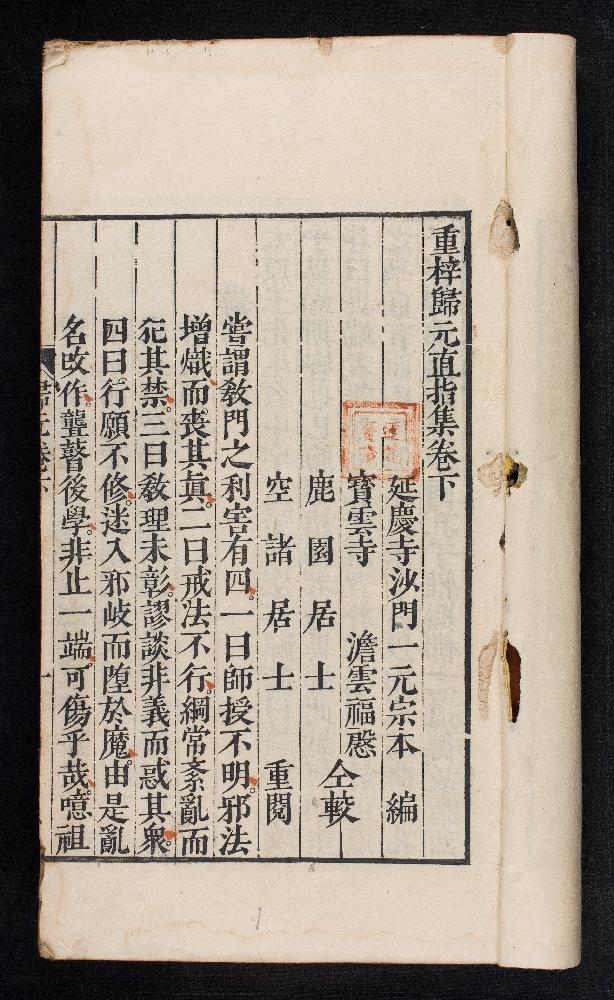 重梓歸元直指集卷下
延慶寺沙門一元宗本 編
寶雲寺 澹雲福慇
鹿園居士 仝較
空諸居士 重閱
嘗謂教門之利害有四。一曰師授不明。邪法
增熾。而喪其眞。二曰戒法不行。綱常紊亂而
犯其禁。三曰教理未彰。謬談非義而惑其衆。
四曰。行願不修。迷入邪岐而墮於魔。由是亂
名攺作。聾瞽後學。非止一端。可傷乎哉。噫。祖
歸元卷下
一